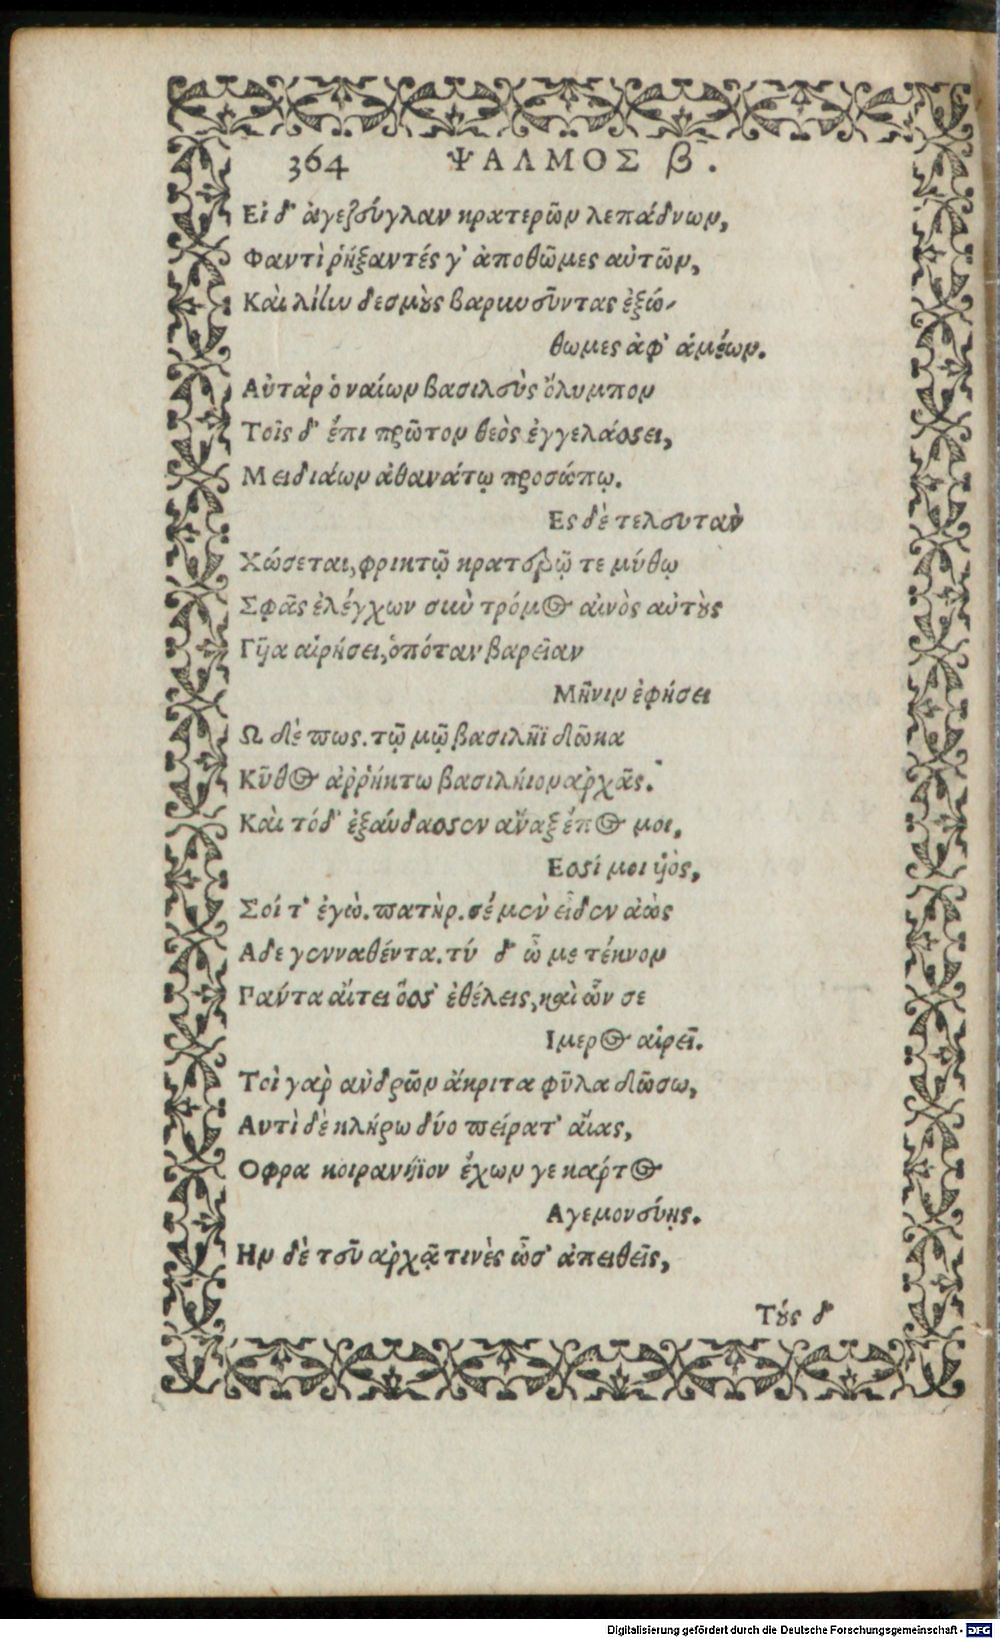 364 ΨΑΛΜΟΣ β.
Εἰ δ' ἄγε ζεύγλαν κρατερῶν λεπάδνων,
Φαντὶ ῥήξαντές γ' ἀποθῶμες αὐτῶν,
Καὶ λίην δεσμοὺς βαρυνοῦντας ἐξώ-
θωμες ἀφ' ἁμέων.
Αὐτὰρ ὁ ναίων βασιλεὺς ὄλυμπον
Τοῖς δ' ἐπὶ πρῶτον θεὸς ἐγγελάσσει,
Μειδιάων ἀθανάτῳ προσώπῳ.
Ες δὲ τελευτὰν
Χώσεται, φρικτῷ κρατερῷ τε μύθῳ
Σφᾶς ἐλέγχων σὺν τρόμος αἰνὸς αὐτοὺς
Γῦα αἱρήσει, ὁπόταν βαρεῖαν
Μῆνιν ἐφήσει
Ω δέ πως. τῷ μῷ βασιλῆϊ δῶκα
Κῦδος ἀῤῥήκτω βασιλήιον ἀρχᾶς.
Καὶ τόδ' ἐξαύδασσεν ἄναξ ἔπος μοι,
Εσσί μοι υἱὸς,
Σοί τ' ἐγὼ. πατὴρ. σέ μὲν εἶδεν ἀὼς
Αδε γενναθέντα. τύ δ' ὦ με τέκνον
Παντα αἴτει ὅσσ' ἐθέλεις, καὶ ὧν σε
Ιμερος αἱρεῖ.
Τοὶ γὰρ ἀνδρῶν ἄκριτα φῦλα δώσω,
Αντὶ δὲ κλήρω δύο πείρατ' αἴας,
Οφρα κοιρανήϊον ἔχων γε κάρτος
Αγεμονσύνης.
Ην δὲ τεῦ ἀρχᾷ τινὲς ὦσ' ἀπειθεῖς,
Τούς δ'
Digitalisierung gefördert durch die Deutsche Forschungsgemeinschaft - DFG